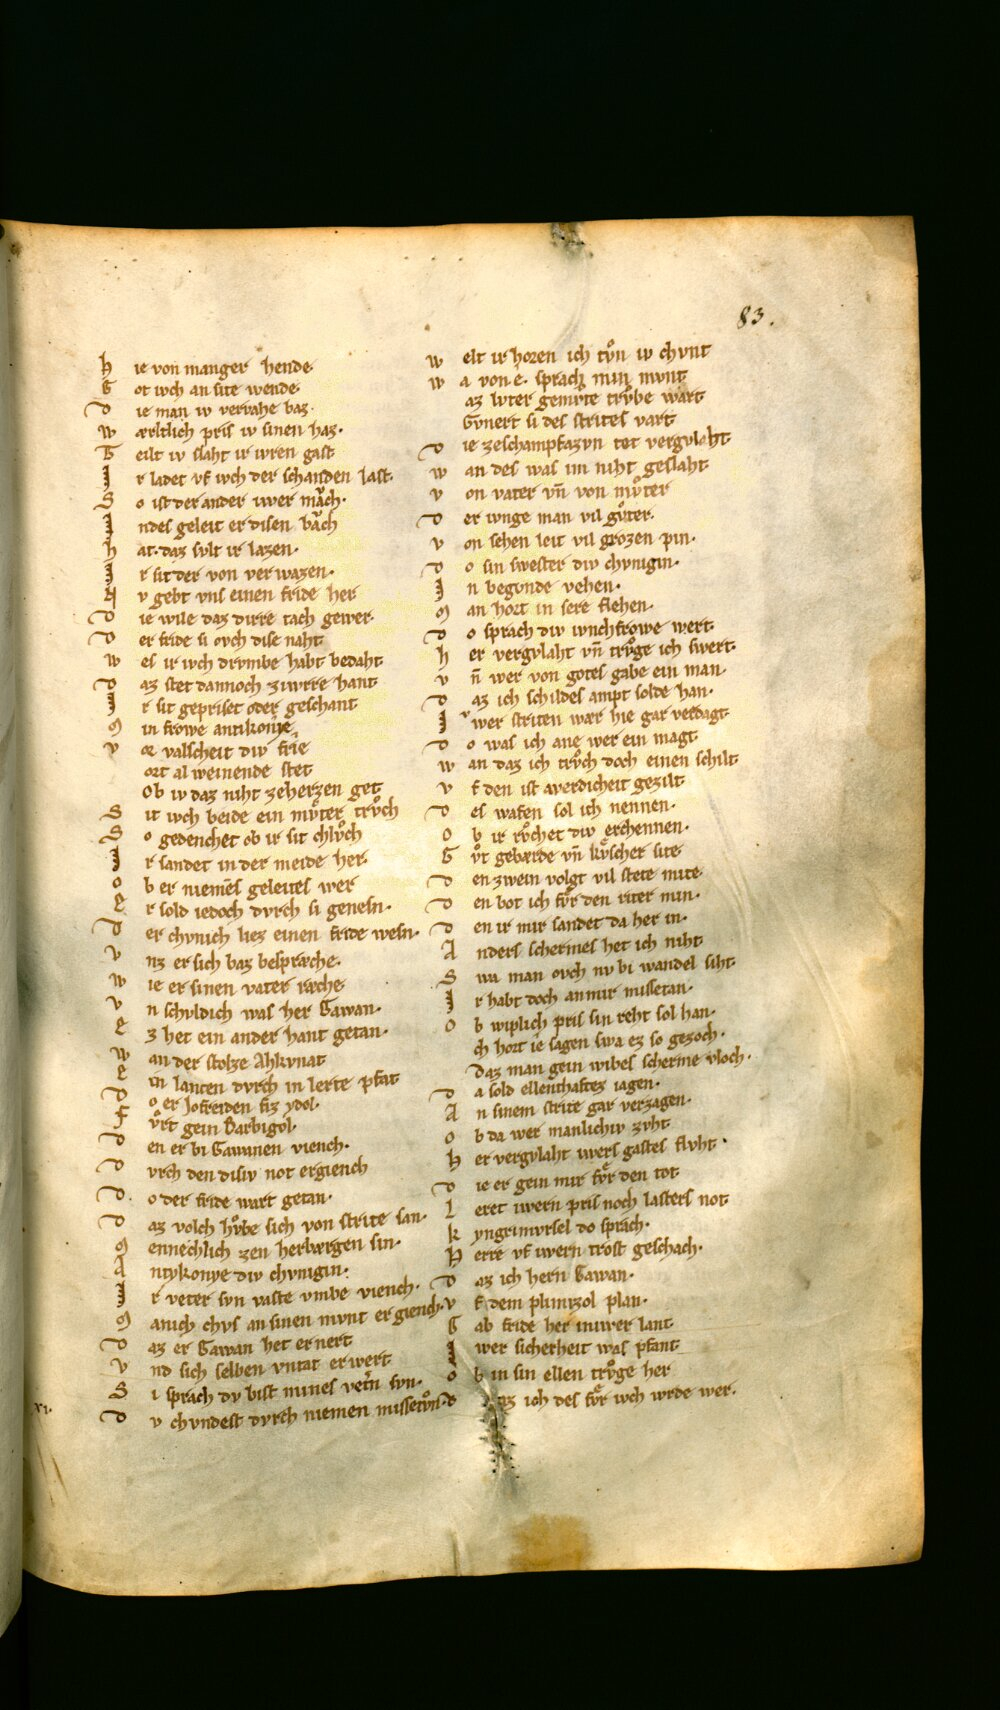 83.
H ie von manger hende
G ot iwch an site wende
D ie man iv vervahe baz·
W ærltlich pris iv sinen haz·
G eilt iv slaht ir iwren gast
I r ladet vf iwch der schanden last·
S o ist der ander uwer mach·
I ndes geleit er disen bach
h at· daz svlt ir lazen·
I r sit der von verwazen·
N v gebt vns einen fride her
D ie wile daz dirre tach gewer·
D er fride si ovch dise naht
W es ir iwch drvmbe habt bedaht
D az stet dannoch ziwrre hant
I r sit gepriset oder geschant
M in frowe antikonie
V or valscheit div frie
ort al weinende stet
Ob iv daz niht zeherzen get
S it iwch beide ein mvͦter trvͦch
S o gedenchet ob ir sit chlvͦch
I r sandet in der meide her·
O b er niemēs geleites wer
E r sold iedoch dvrch si genesn·
D er chvnich liez einen fride wesn·
V nz er sich baz bespræche·
W ie er sinen vater ræche
V n schvldich was her Gawan·
E z het ein ander hant getan·
W an der stolze Ahkvnat
E in lancen dvrch in lerte pfat
D o er Jofreiden fiz ydol·
F vͦrt gein Barbigol·
D en er bi Gawanen viench·
D vrch den disiv not ergiench
D· o der fride wart getan·
D az volch hvͦbe sich von strite san·
M ennechlich zen herbærgen sin·
A ntykonye div chvnigin·
I r veter svn vaste vmbe viench·
M anich chvs an sinen mvnt ergiench·
D az er Gawan het ernert
V nd sich selben vntat erwert
S i sprach dv bist mines vetn svn·
D v chvndest dvrch niemen missetvͦn·
W elt ir horen ich tvͦn iv chvnt
W a von e· sprach min mvnt
az lvter gemvte trvͦbe wart
Gvnert si des strites vart
D ie zeschampfazvn tet vergvlaht
W an des was im niht geslaht
V on vater vn̄ von mvͦter
D er ivnge man vil gvͦter·
V on sehen leit vil grozen pin·
D o sin swester div chvnigin·
I n begvnde vehen·
M an hort in sere flehen·
D o sprach div ivnchfrowe wert
H er vergvlaht vn̄ trvͦge ich swert·
V n̄ wer von gotes gabe ein man·
D az ich schildes ampt solde han·
I wer striten wær hie gar verdagt
D o was ich ane wer ein magt
W an daz ich trvͦch doch einen schilt
V f den ist averdicheit gezilt
D es wafen sol ich nennen·
O b ir rvͦchet div erchennen·
G vͦt gebærde vn̄ kvͤscher site
D en zwein volgt vil stete mite
D en bot ich fvͤr den riter min·
D en ir mir sandet da her in·
A nders schermes het ich niht
S wa man ovch nv bi wandel siht
I r habt doch an mir missetan·
O b wiplich pris sin reht sol han·
ch hort ie sagen swa ez so gezoch·
Daz man gein wibes scherme vloch·
D a sold ellenthaftez iagen·
A n sinem strite gar verzagen·
O b da wer manlichiv zvht
H er vergvlaht iwers gastes flvht·
D ie er gein mir fvͤr den tot
L eret iwern pris noch lasters not
K yngrimvrsel do sprach·
H erre vf iwern trost geschach·
D az ich hern Gawan·
V f dem plimizol plan·
G ab fride her iniwer lant
I wer sicherheit was pfant
O b in sin ellen trvͦge her
D az ich des fvͤr iwch wrde wer·
xi.